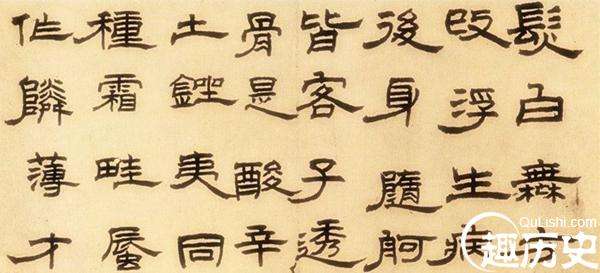 髮白無方
改浮生病
後身隨舸
皆客子透
骨是酸辛
土銼夷同
種霜畦蜃
作隣薄才
QuLishi.com
趣历史